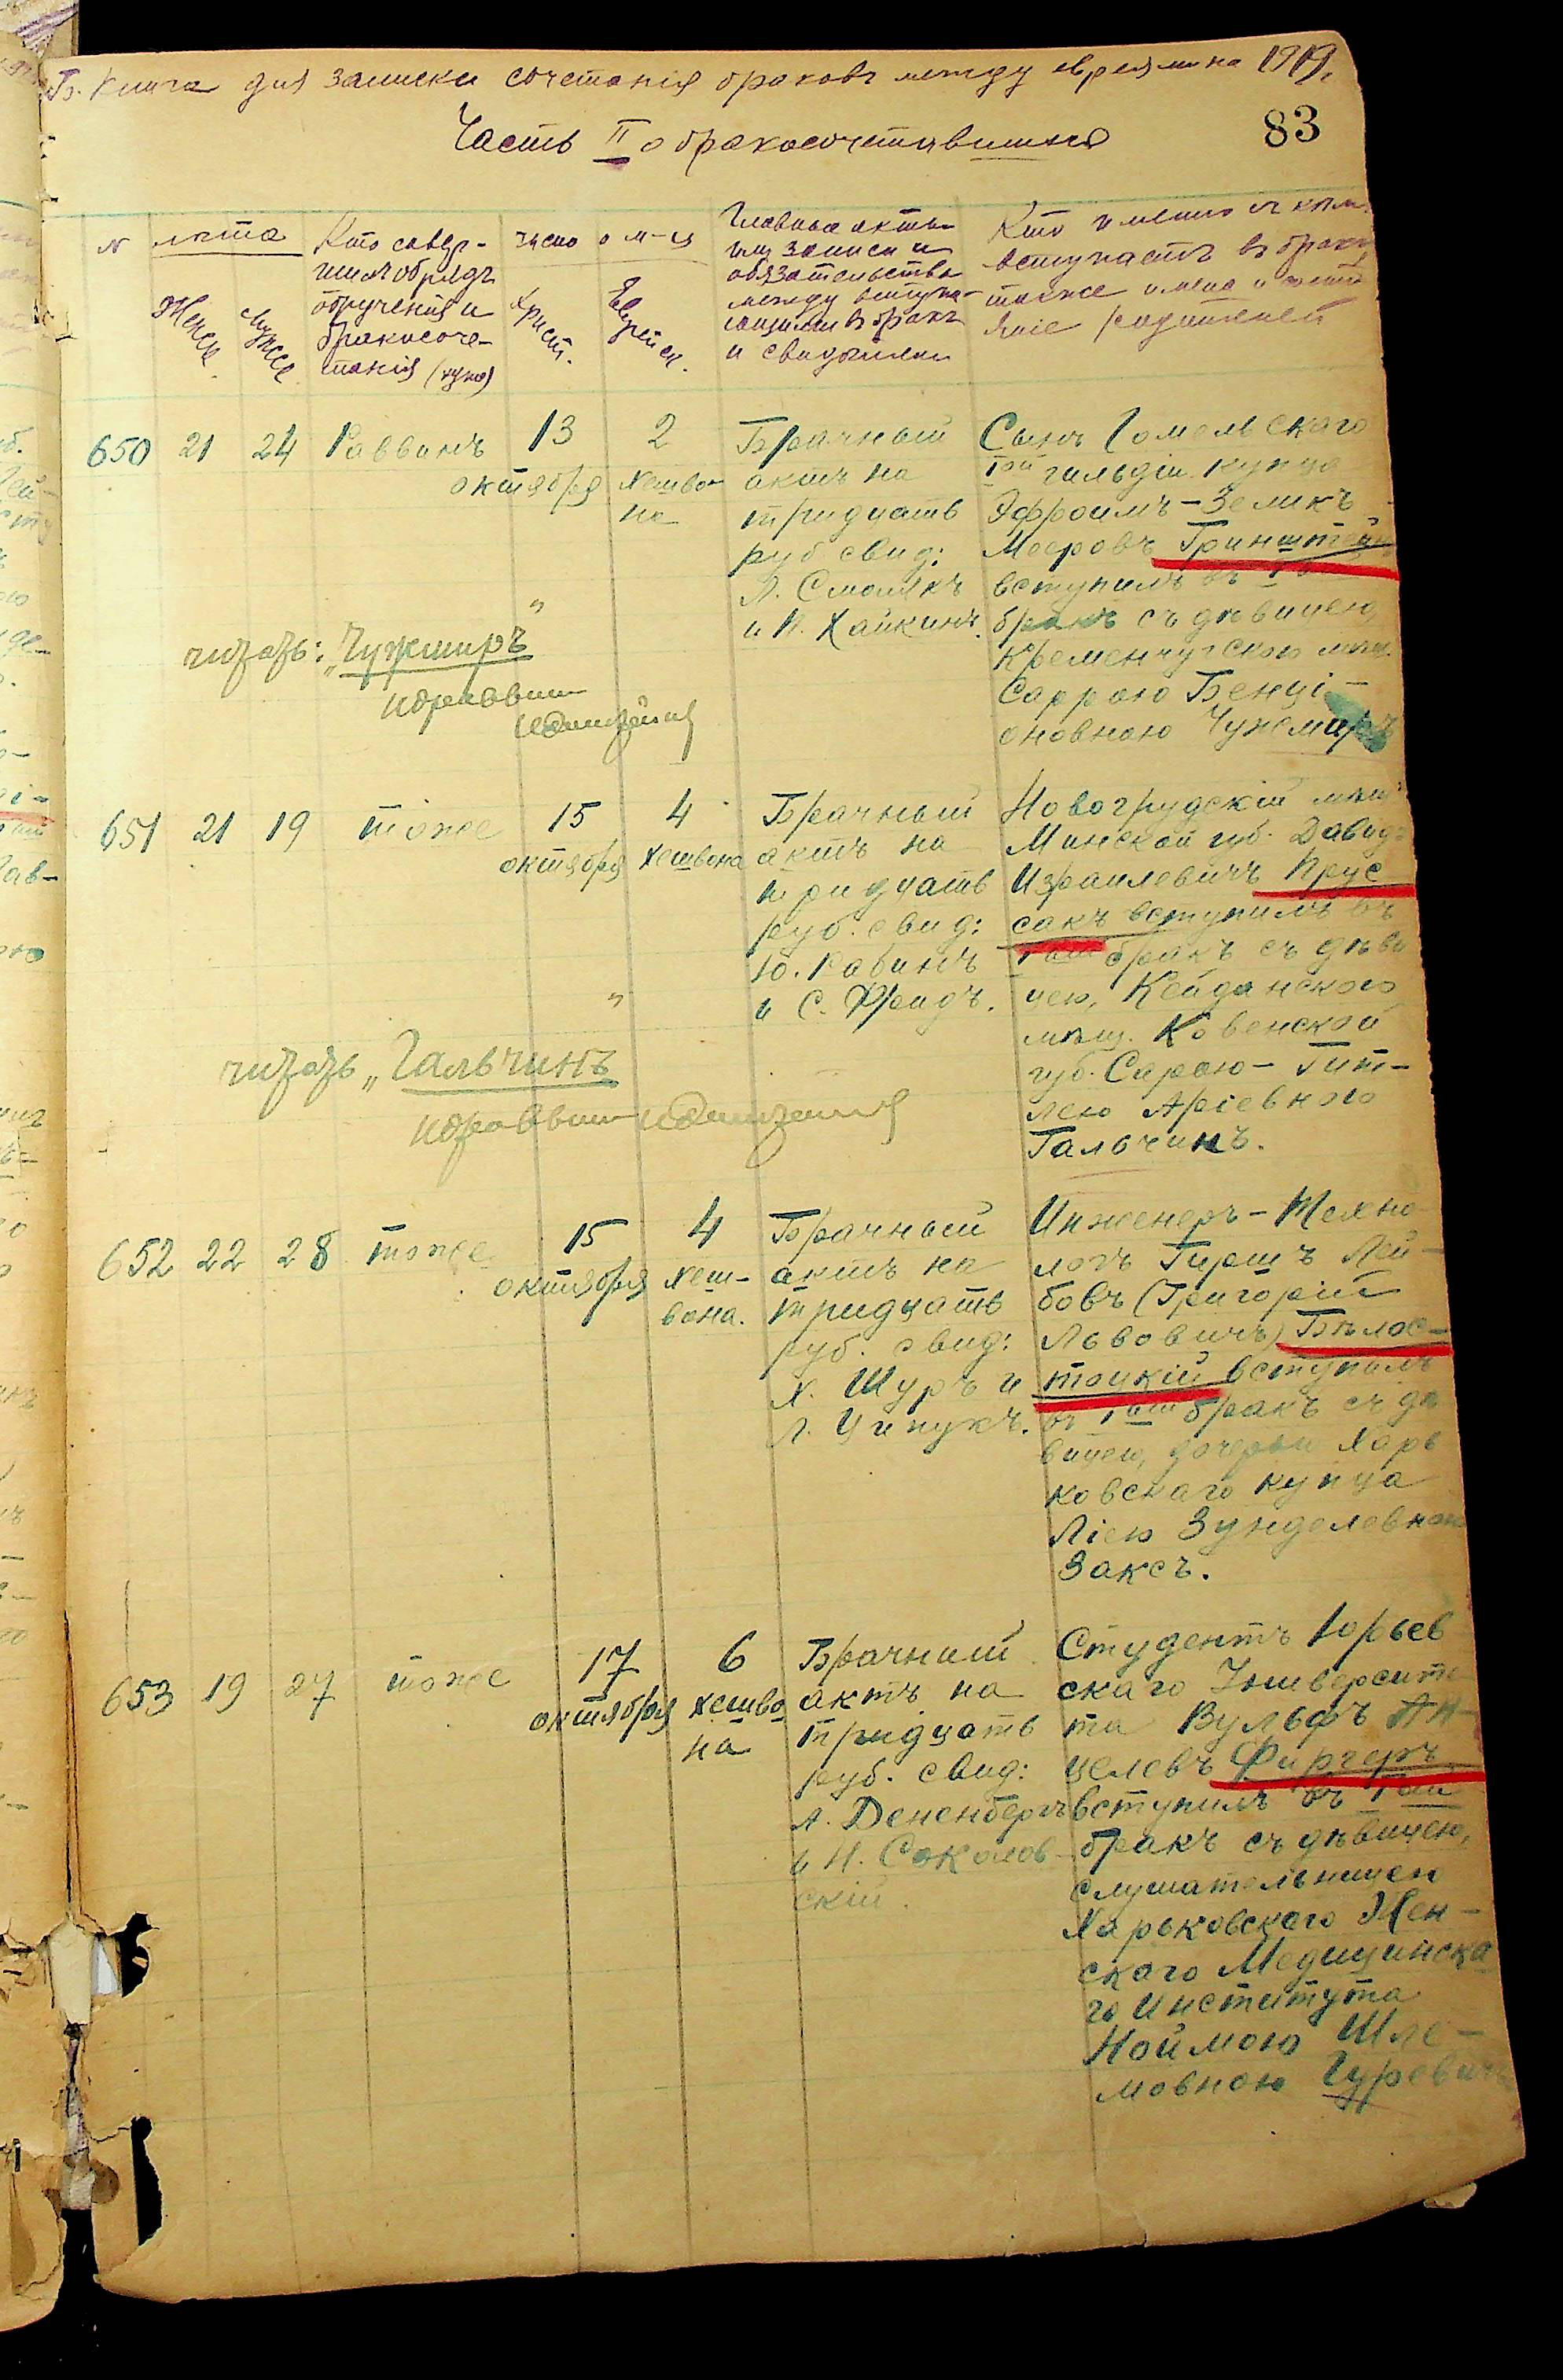 Книга для записки сочетанія браковъ между евреями на 1919 г.
Часть II о бракосочетавшихся
83
N
лѣта
Женск.
Мужск.
Кто совер-
шилъ обрядъ
обрученія и
бракосоче-
танія (хупа)
число и м-ца
Христ.
Еврейск.
Главные акты
или записи и
обязательства
между вступа-
ющими въ бракъ
и свидѣтели
Кто именно и съ кѣмъ
вступаетъ въ бракъ
также имена и
родителей
650 21 24 Раввинъ
13
октября
2
Хешво-
на
Брачный
актъ на
тридцать
руб свид:
Л. Смолякъ
и И. Хайкинъ.
Сынъ Гомельскаго
1ой гильдіи купца
Эфроимъ-Зеликъ
Мееровъ Гринштейнъ
вступилъ въ 1ый
бракъ съ дѣвицею,
Кременчугскою мѣщ.
Саррою Бенці-
оновною Чужемиръ
читать: „Чужмиръ"
651 21 19 тоже
15
октября
4
Хешвона
Брачный
актъ на
тридцать
руб. свид:
Ю. Рабинъ
и С. Фридъ.
Новогрудскій мѣщ.
Минской губ. Давидъ
Израилевичъ Прус
сакъ вступилъ въ
1ый бракъ съ дѣви
цею, Кейданскою
мѣщ. Ковенской
губ. Сарою-Гит-
лею Аріевною
Гальчинъ.
читать „Гальчинъ
652 22 28 тоже
15
октября
4
Хеш-
вона.
Брачный
актъ на
тридцать
руб. свид:
Х. Шуръ и
Л. Ципукъ.
Инженеръ-Техно
логъ Гиршъ Лей-
бовъ (Григорій
Львовичъ) Бѣлос-
тоцкій вступилъ
въ 1ый бракъ съ дѣ
вицею, дочерью Харь
ковскаго купца
Ліею Зунделевною
Заксъ.
653 19 27 тоже
17
октября
6
Хешво
на
Брачный
актъ на
тридцать
руб. свид:
А. Дененбергъ
и Н. Соколов-
скій.
Студентъ Юрьев
скаго Университе
та Вульфъ АН-
целевъ Фиргеръ
вступилъ въ 1ый
бракъ съ дѣвицею,
слушательницею
Харьковскаго Жен-
скаго Медицинска
го Института
Ноймою Шле-
мовною Гуревичъ